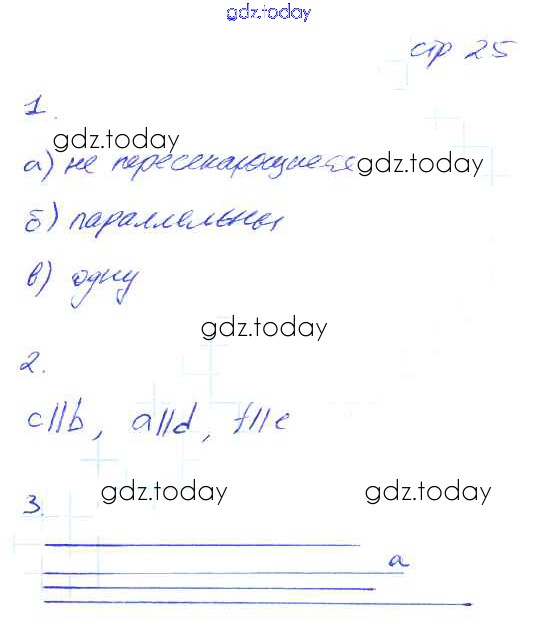 gdz.today
стр 25
1.
gdz.today
а) не пересекающиеся
gdz.today
б) параллельны
в) одну
gdz.today
2.
c||b, a||d, f||e
3.
gdz.today gdz.today
a